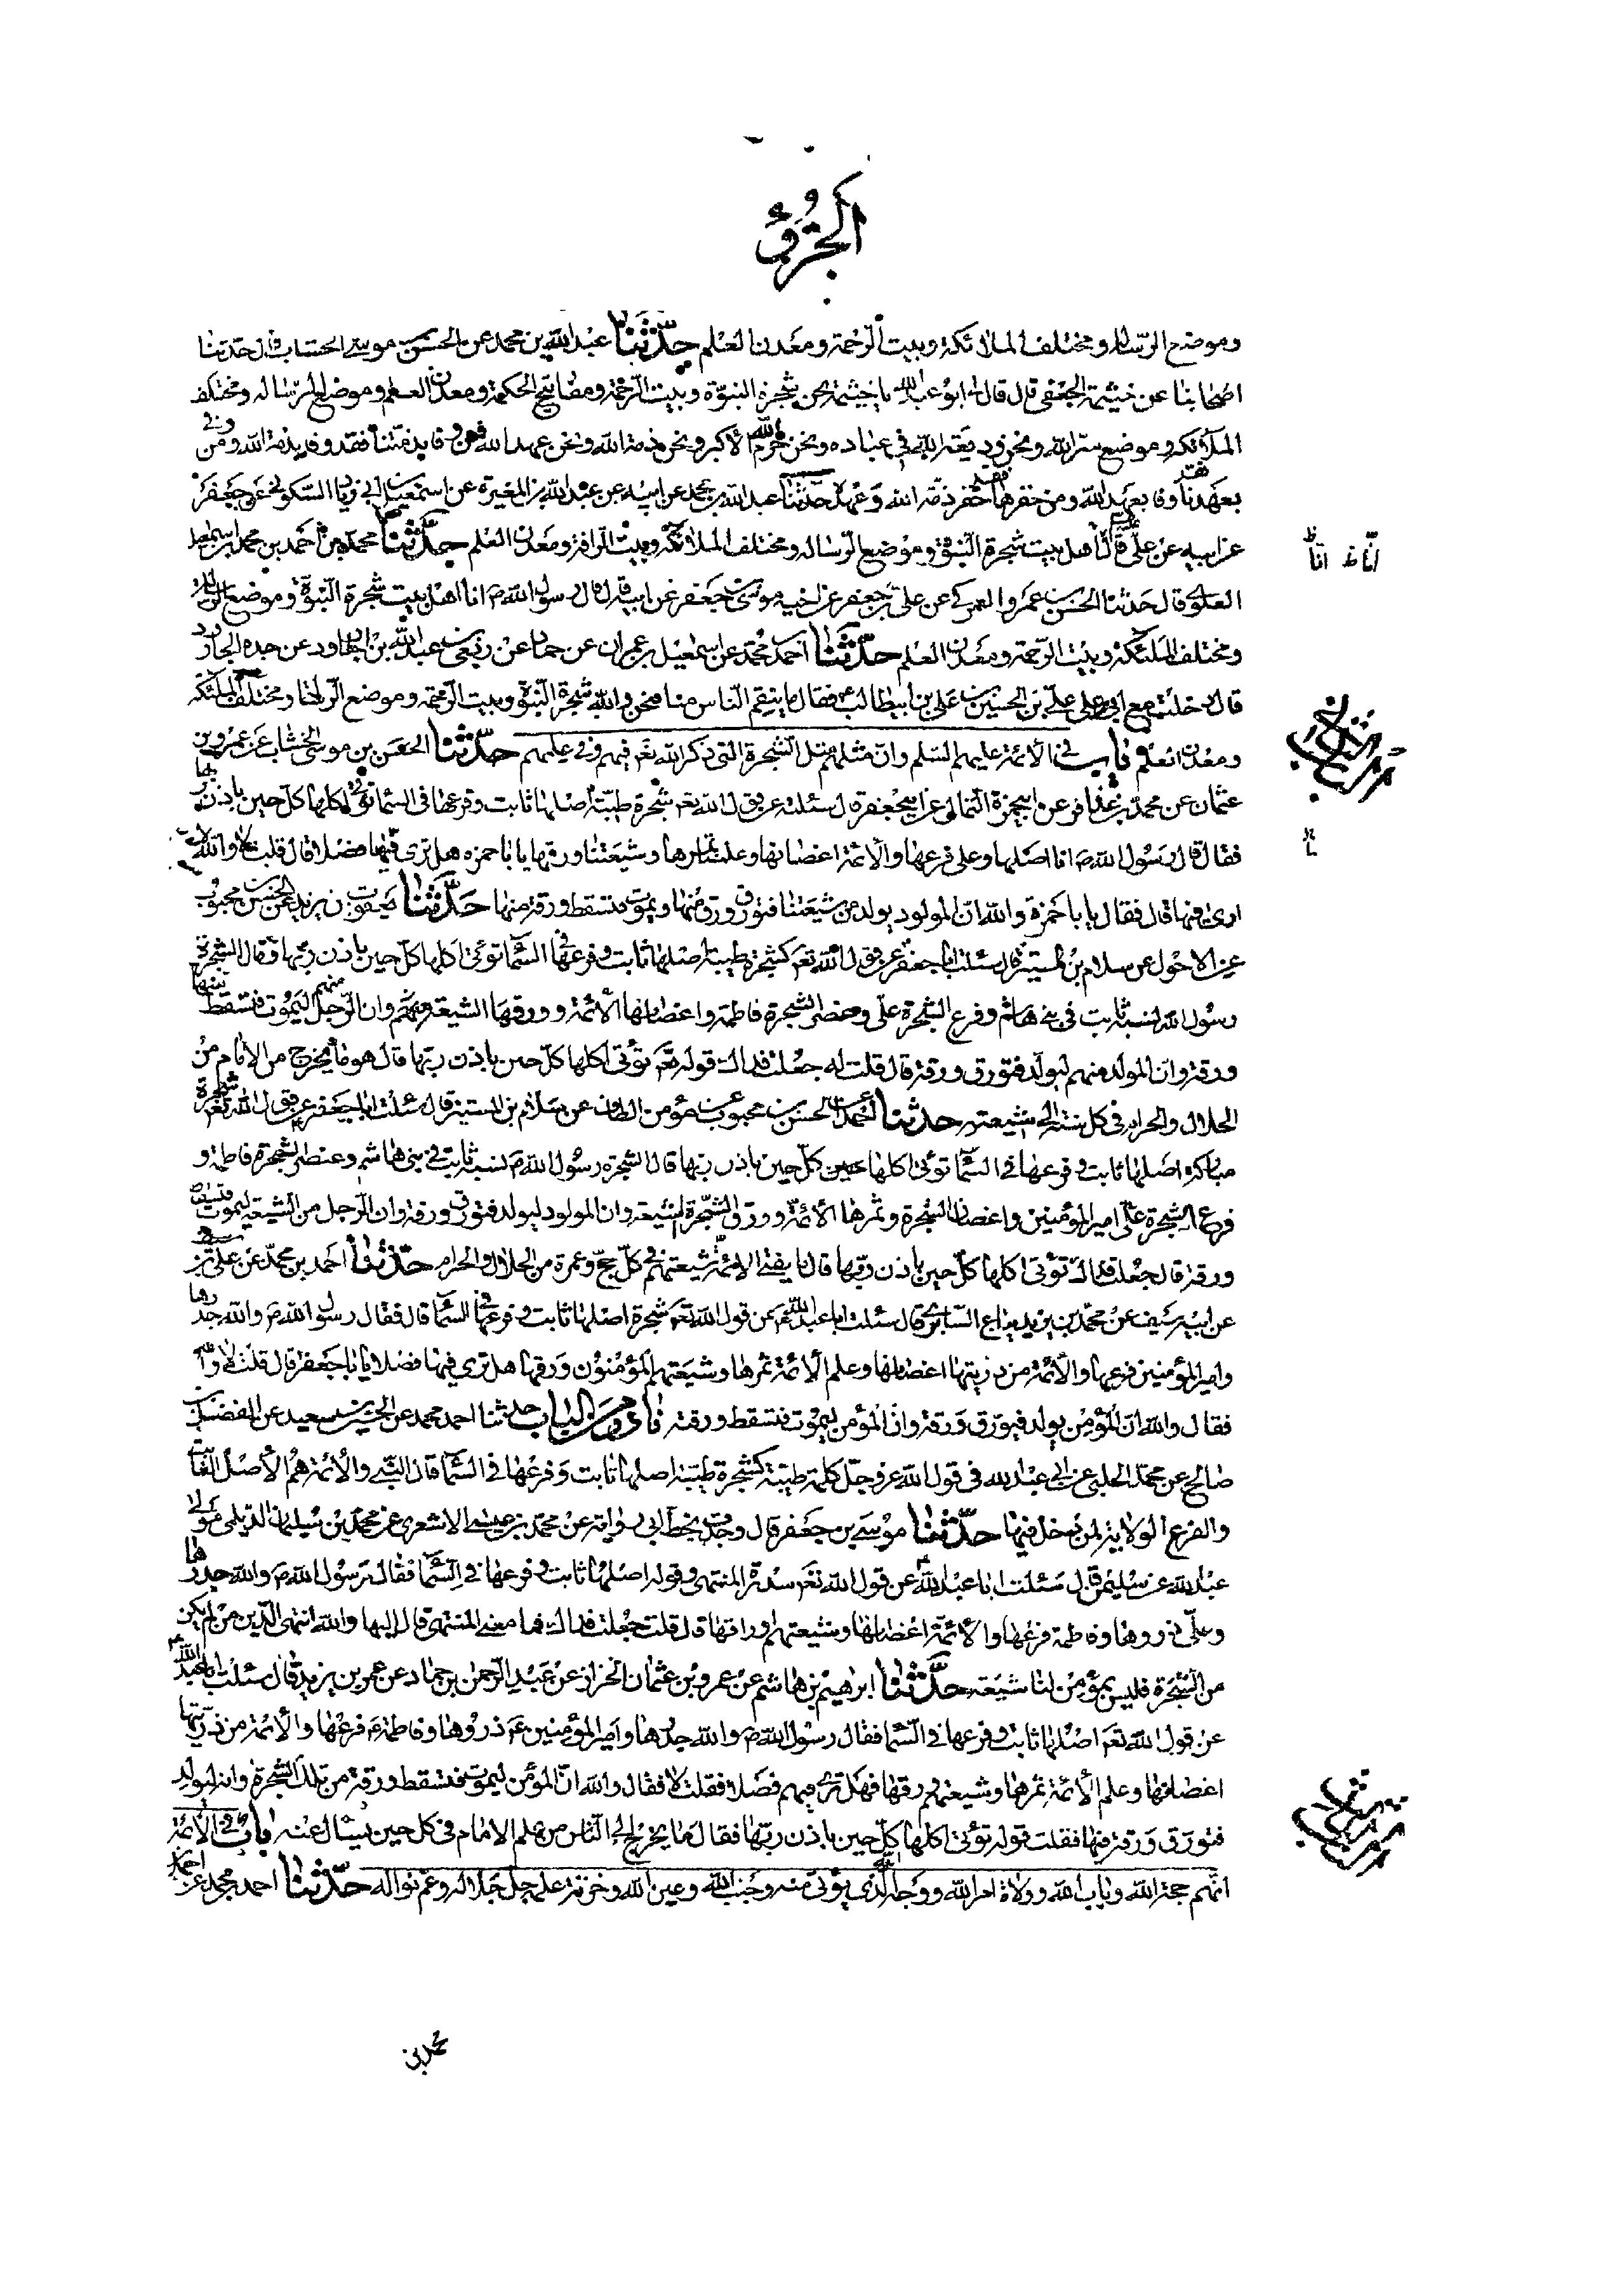 الجزؤ
وموضع الرسالة ومختلف الملائكة وبيت الرحمة ومعدن العلم حدثنا عبد الله بن محمد عن الحسن بن موسى الخشاب قال حدثنا
اصحابنا عن خيثمة الجعفي قال قال لي ابو عبد الله يا خيثمة نحن شجرة النبوة وبيت الرحمة ومفاتيح الحكمة ومعدن العلم وموضع الرسالة ومختلف
الملائكة وموضع سر الله ونحن وديعة الله في عباده ونحن حرم الله الاكبر ونحن ذمة الله ونحن عهد الله فمن وفا بذمتنا فقد وفا بذمة الله ومن
وفى بعهدنا وفا بعهد الله ومن خفرها خفر ذمة الله وعهده حدثنا عبد الله بن محمد عن ابيه عن عبد الله بن المغيرة عن اسمعيل بن ابي زياد السكوني عن جعفر
عن ابيه عن علي قال انا اهل بيت شجرة النبوة وموضع الرسالة ومختلف الملائكة وبيت الرافة ومعدن العلم حدثنا محمد بن احمد بن محمد بن اسمعيل
العلوي قال حدثنا الحسن بن عمر والعمركي عن علي بن جعفر عن اخيه موسى بن جعفر عن ابيه قال قال رسول الله ص انا اهل بيت شجرة النبوة وموضع الرسالة
ومختلف الملئكة وبيت الرحمة ومعدن العلم حدثنا احمد بن محمد عن اسمعيل بن عمران عن حماد عن ربعي بن عبد الله بن الجارود عن جده الجارود
قال دخلت مع ابي على علي بن الحسين بن علي بن ابيطالب ع فقال ما ينقم الناس منا فنحن والله شجرة النبوة وبيت الرحمة وموضع الرسالة ومختلف الملئكة
ومعدن العلم باب في الائمة عليهم السلم وان مثلهم مثل الشجرة التي ذكر الله تع فيهم وفي علمهم حدثنا الحسن بن موسى الخشاب عن عمرو بن
عثمان عن محمد بن عذافر عن ابيحمزة الثمالي عن ابيجعفر قال سئلته عن قول الله تع كشجرة طيبة اصلها ثابت وفرعها في السماء تؤتي اكلها كل حين باذن ربها
فقال قال رسول الله ص انا اصلها وعلي فرعها والائمة اغصانها وعلمنا ثمرها وشيعتنا ورقها يا با حمزه هل ترى فيها فضلا قال قلت لا والله لا
ارى فيها قال فقال يا با حمزة والله ان المولود يولد من شيعتنا فتورق ورقة منها ويموت فتسقط ورقة منها حدثنا يعقوب بن يزيد عن الحسن بن محبوب
عن الاحول عن سلام بن المستنير قال سئلت ابا جعفر عن قول الله تع كشجرة طيبة اصلها ثابت وفرعها في السماء تؤتي اكلها كل حين باذن ربها فقال الشجرة
رسول الله نسبه ثابت في بني هاشم وفرع الشجرة علي وعنصر الشجرة فاطمة واغصانها الائمة وورقها الشيعة وان الرجل منهم ليموت فتسقط منها
ورقة وان المولد منهم ليولد فتورق ورقة قال قلت له جعلت فداك قوله تع تؤتي اكلها كل حين باذن ربها قال هو ما يخرج من الامام من
الحلال والحرام في كل سنة الى شيعته حدثنا احمد عن الحسن بن محبوب عن مؤمن الطاق عن سلام بن المستنير قال سئلت ابا جعفر عن قول الله تع شجرة
مباركة اصلها ثابت وفرعها في السماء تؤتي اكلها كل حين باذن ربها قال الشجرة رسول الله ص نسبه ثابت في بني هاشم وعنصر الشجرة فاطمة و
فرع الشجرة علي امير المؤمنين واغصان الشجرة وثمرها الائمة وورق الشجرة الشيعة وان المولود ليولد فتورق ورقة وان الرجل من الشيعة ليموت فتسقط
ورقة قال جعلت فداك تؤتي اكلها كل حين باذن ربها قال ما يفتي الائمة شيعتهم في كل حج وعمرة من الحلال والحرام حدثنا احمد بن محمد عن علي بن سيف
عن ابيه سيف عن محمد بن يزيد بياع السابري قال سئلت ابا عبد الله ع عن قول الله تع كشجرة اصلها ثابت وفرعها في السماء قال فقال رسول الله ص والله جذرها
وامير المؤمنين فرعها والائمة من ذريتها اغصانها وعلم الائمة ثمرها وشيعتهم المؤمنون ورقها هل ترى فيها فضلا يا با جعفر قال قلت لا والله
فقال والله ان المؤمن يولد فيورق ورقة وان المؤمن ليموت فتسقط ورقة نادر من الباب حدثنا احمد بن محمد عن الحسين بن سعيد عن المفضل بن
صالح عن محمد الحلبي عن ابي عبد الله في قول الله عز وجل كلمة طيبة كشجرة طيبة اصلها ثابت وفرعها في السماء قال النبي والائمة هم الاصل الثابت
والفرع الولاية لمن دخل فيها حدثنا موسى بن جعفر قال وجدت بخط ابي رواية عن محمد بن عيسى الاشعري عن محمد بن سليمان الديلمي مولى
عبد الله عن سليمن قال سئلت ابا عبد الله ع عن قول الله تع سدرة المنتهى وقوله اصلها ثابت وفرعها في السماء فقال رسول الله ص والله جذرها
وعلي ذروها وفاطمة فرعها والائمة اغصانها وشيعتهم اوراقها قال قلت جعلت فداك فما معنى المنتهى قال اليها والله انتهى الدين من لم يكن
من الشجرة فليس بمؤمن لنا شيعة حدثنا ابرهيم بن هاشم عن عمرو بن عثمان الخزاز عن عبد الرحمن بن حماد عن عمر بن يزيد قال سئلت ابا عبد الله
عن قول الله تع اصلها ثابت وفرعها في السماء فقال رسول الله ص والله جذرها وامير المؤمنين ع ذروها وفاطمة ع فرعها والائمة من ذريتها
اغصانها وعلم الائمة ثمرها وشيعتهم ورقها فهل ترى فيهم فضلا فقلت لا فقال والله ان المؤمن ليموت فتسقط ورقة من تلك الشجرة وانه ليولد
فتورق ورقة فيها فقلت قوله تؤتي اكلها كل حين باذن ربها فقال ما يخرج الى الناس من علم الامام في كل حين يسال عنه باب في الائمة
انهم حجة الله وباب الله وولاة امر الله ووجه الله الذي يؤتى منه وجنب الله وعين الله وخزنة علمه جل جلاله وعم نواله حدثنا احمد بن محمد عن
محمد بن